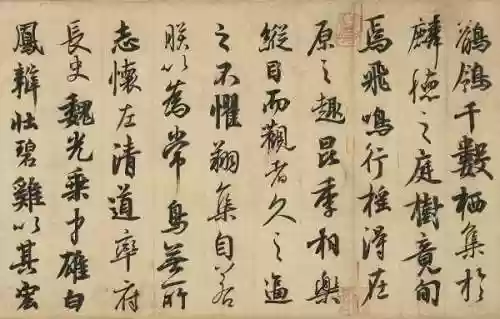 鶺鴒千數栖集於
麟德之庭樹竟旬
焉飛鳴行摇得在
原之趣昆季相樂
縱目而觀者久之逼
之不懼翔集自若
朕以為常鳥無所
志懷左清道率府
長史魏光乘才雄白
鳳辯壯碧雞以其宏